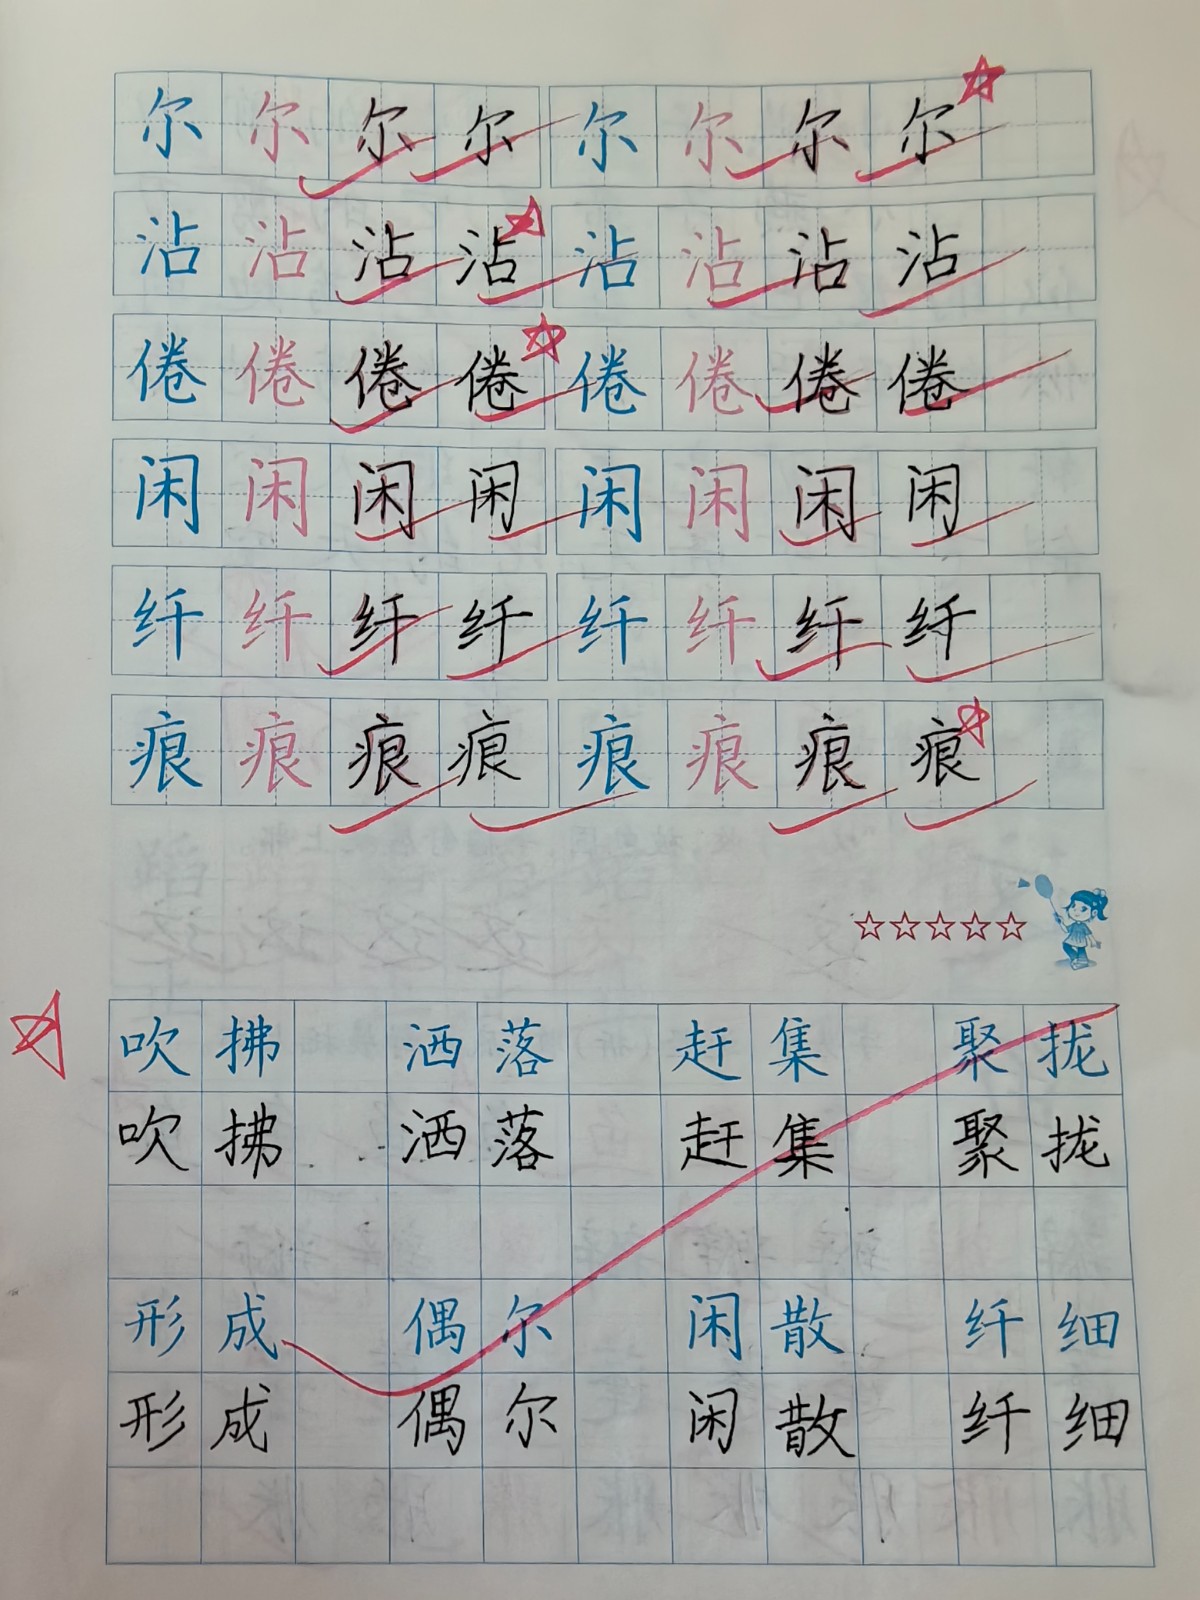 尔 尔 尔 尔 尔 尔 尔 尔
沾 沾 沾 沾 沾 沾 沾 沾
倦 倦 倦 倦 倦 倦 倦 倦
闲 闲 闲 闲 闲 闲 闲 闲
纤 纤 纤 纤 纤 纤 纤 纤
痕 痕 痕 痕 痕 痕 痕 痕
☆☆☆☆☆
吹拂 洒落 赶集 聚拢
吹拂 洒落 赶集 聚拢
形成 偶尔 闲散 纤细
形成 偶尔 闲散 纤细